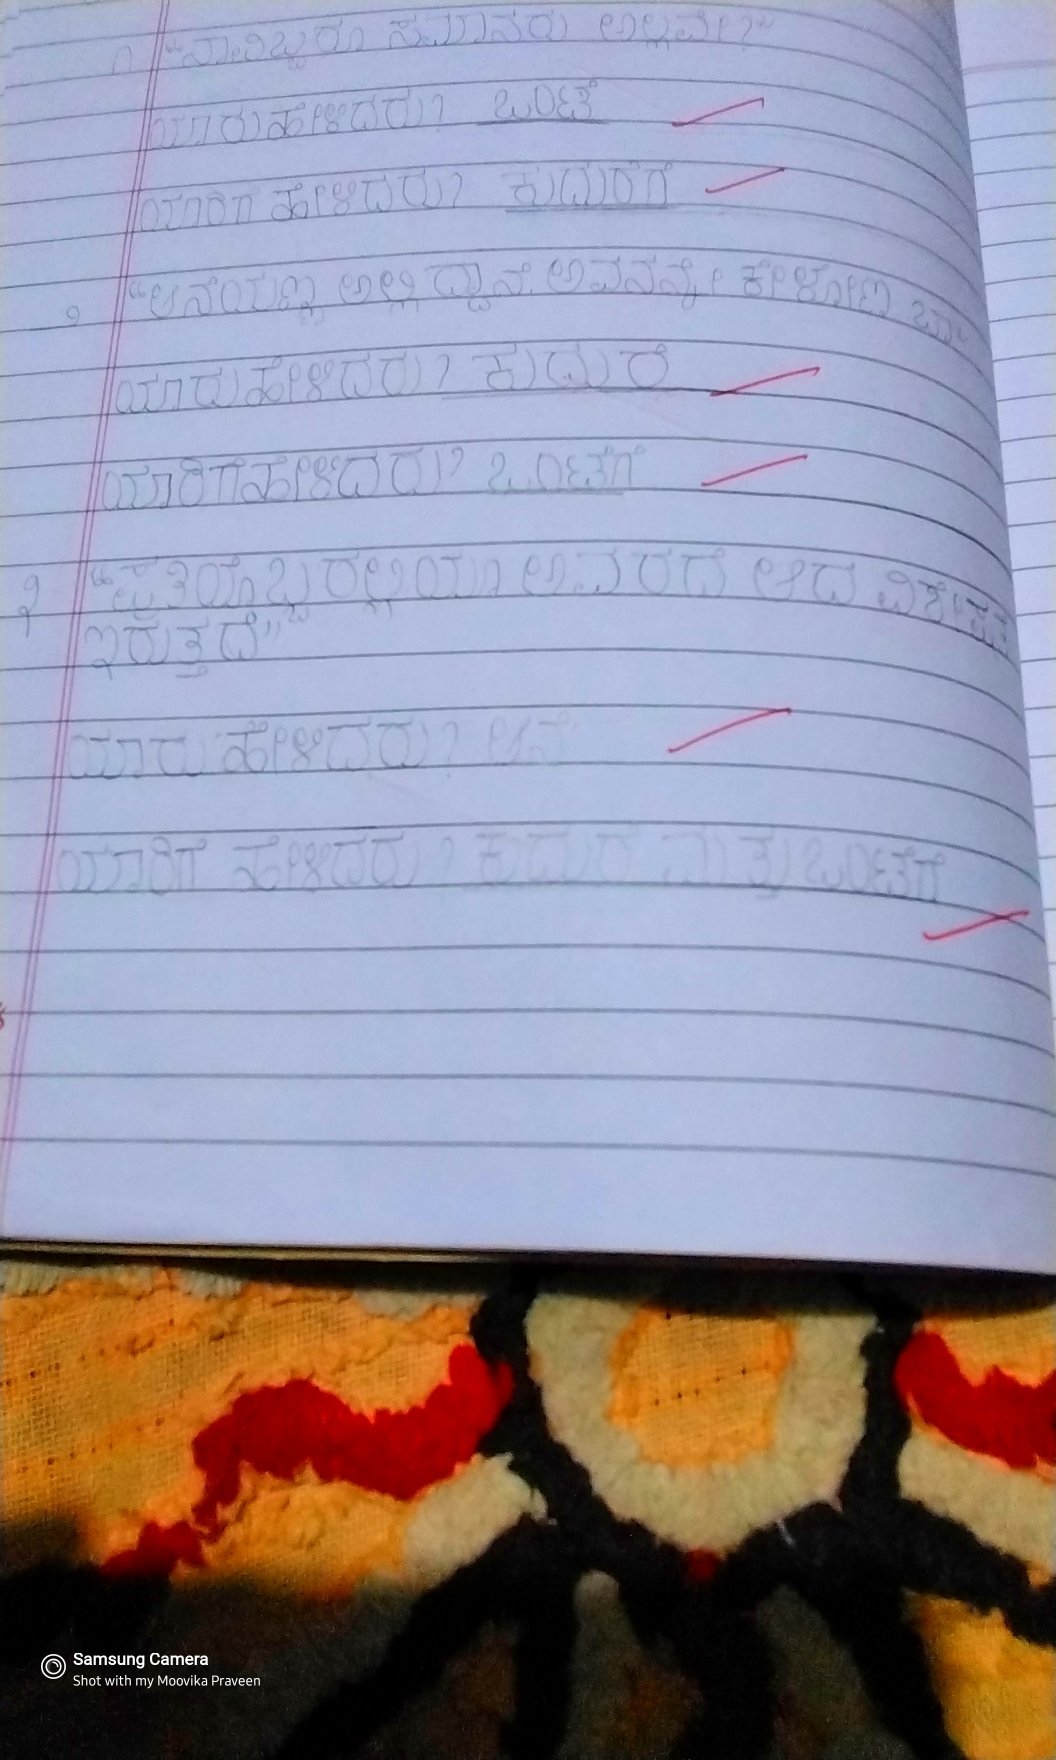 ೧ "ನಾವಿಬ್ಬರೂ ಸಮಾನರು ಅಲ್ಲವೇ?"
ಯಾರು ಹೇಳಿದರು? ಒಂಟೆ
ಯಾರಿಗೆ ಹೇಳಿದರು? ಕುದುರೆಗೆ
೨ "ಆನೆಯಣ್ಣ ಅಲ್ಲಿದ್ದಾನೆ ಅವನನ್ನೇ ಕೇಳೋಣ ಬಾ"
ಯಾರು ಹೇಳಿದರು? ಕುದುರೆ
ಯಾರಿಗೆ ಹೇಳಿದರು? ಒಂಟೆಗೆ
೩ "ಪ್ರತಿಯೊಬ್ಬರಲ್ಲಿಯೂ ಅವರದೆ ಆದ ವಿಶೇಷತೆ
ಇರುತ್ತದೆ"
ಯಾರು ಹೇಳಿದರು? ಆನೆ
ಯಾರಿಗೆ ಹೇಳಿದರು? ಕುದುರೆ ಮತ್ತು ಒಂಟೆಗೆ
Samsung Camera
Shot with my Moovika Praveen